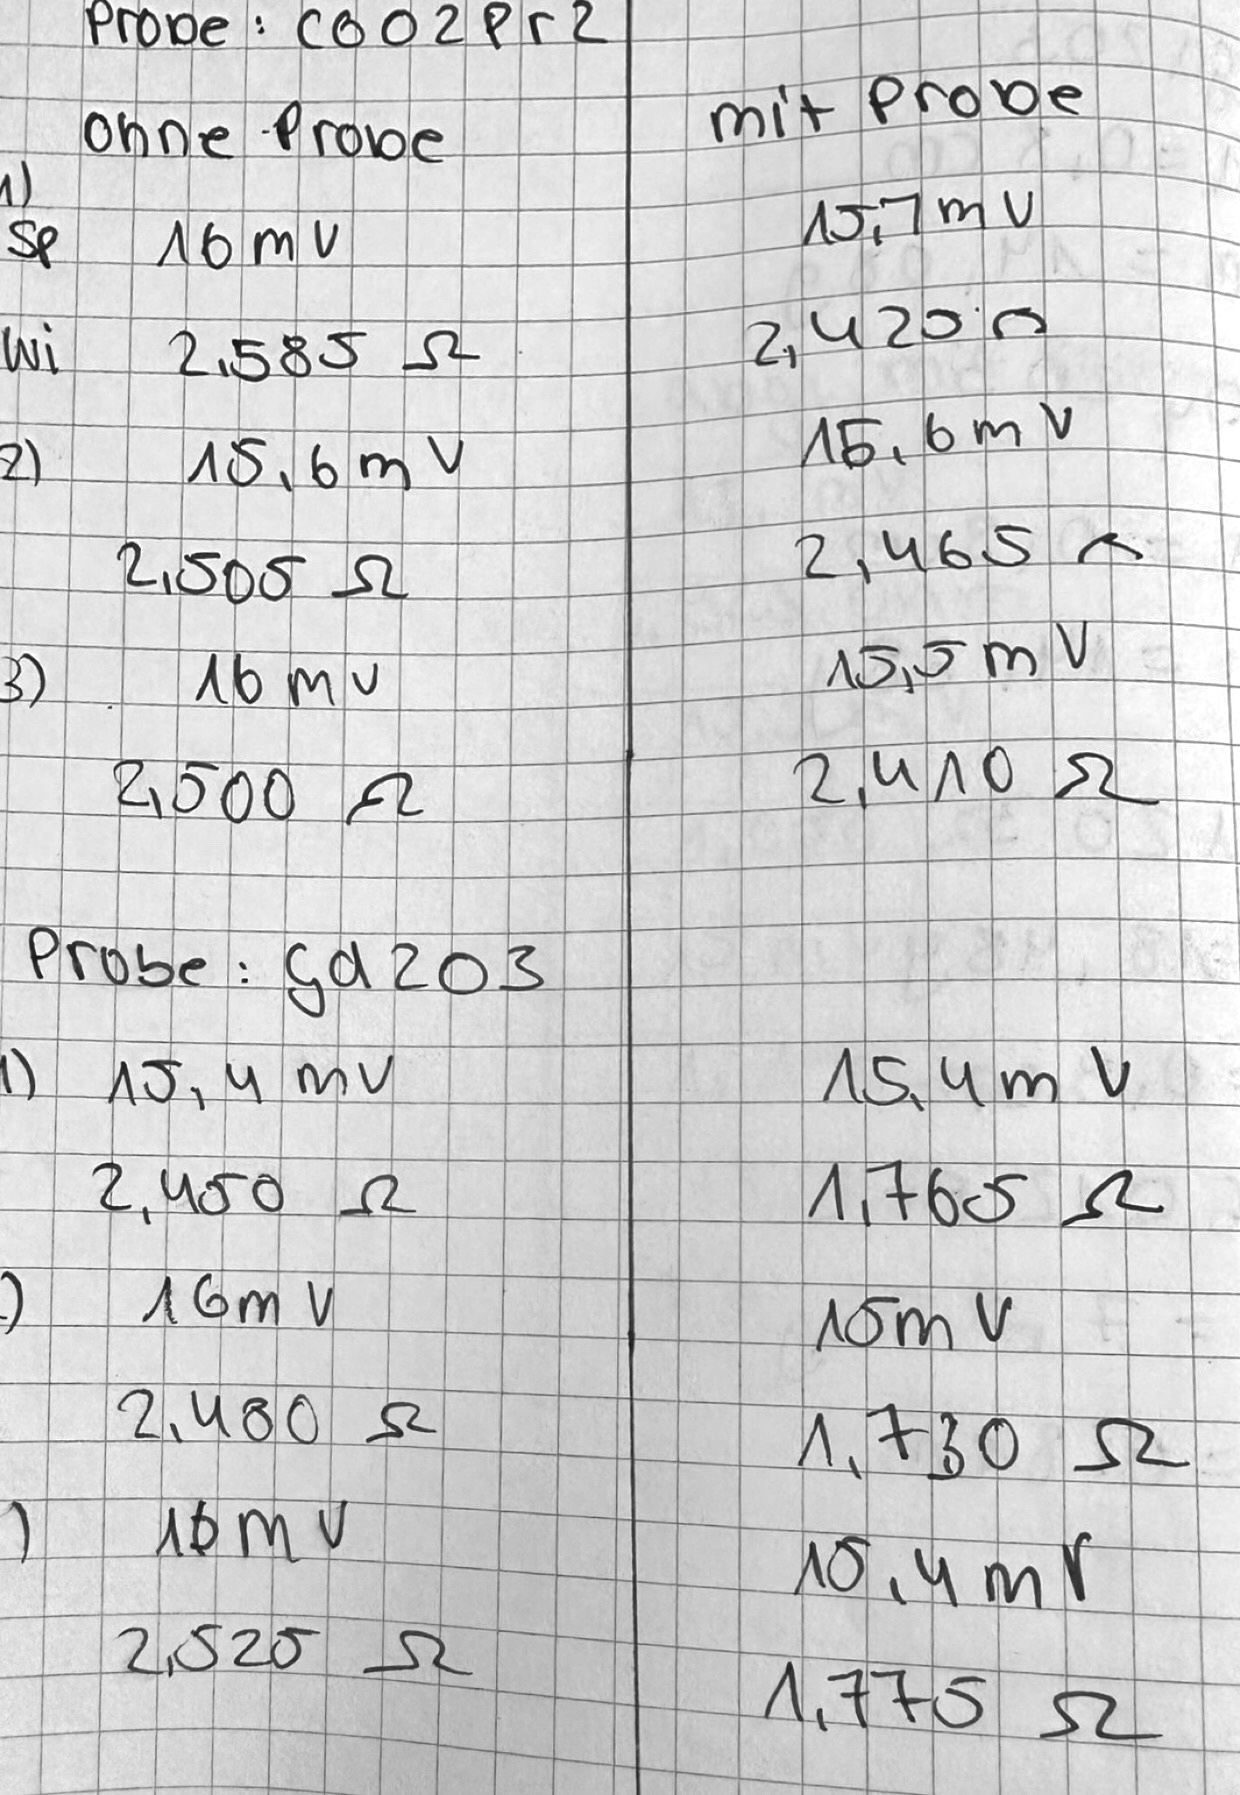 Probe: COO2Pr2
ohne Probe
mit Probe
1)
Sp 16 mV
15,7 mV
Wi 2,585 Ω
2,420 Ω
2) 15,6 mV
15,6 mV
2,505 Ω
2,465 Ω
3) 16 mV
15,5 mV
2,500 Ω
2,410 Ω
Probe: Gd2O3
1) 15,4 mV
15,4 mV
2,450 Ω
1,765 Ω
) 16 mV
15 mV
2,480 Ω
1,730 Ω
) 16 mV
15,4 mV
2,525 Ω
1,775 Ω